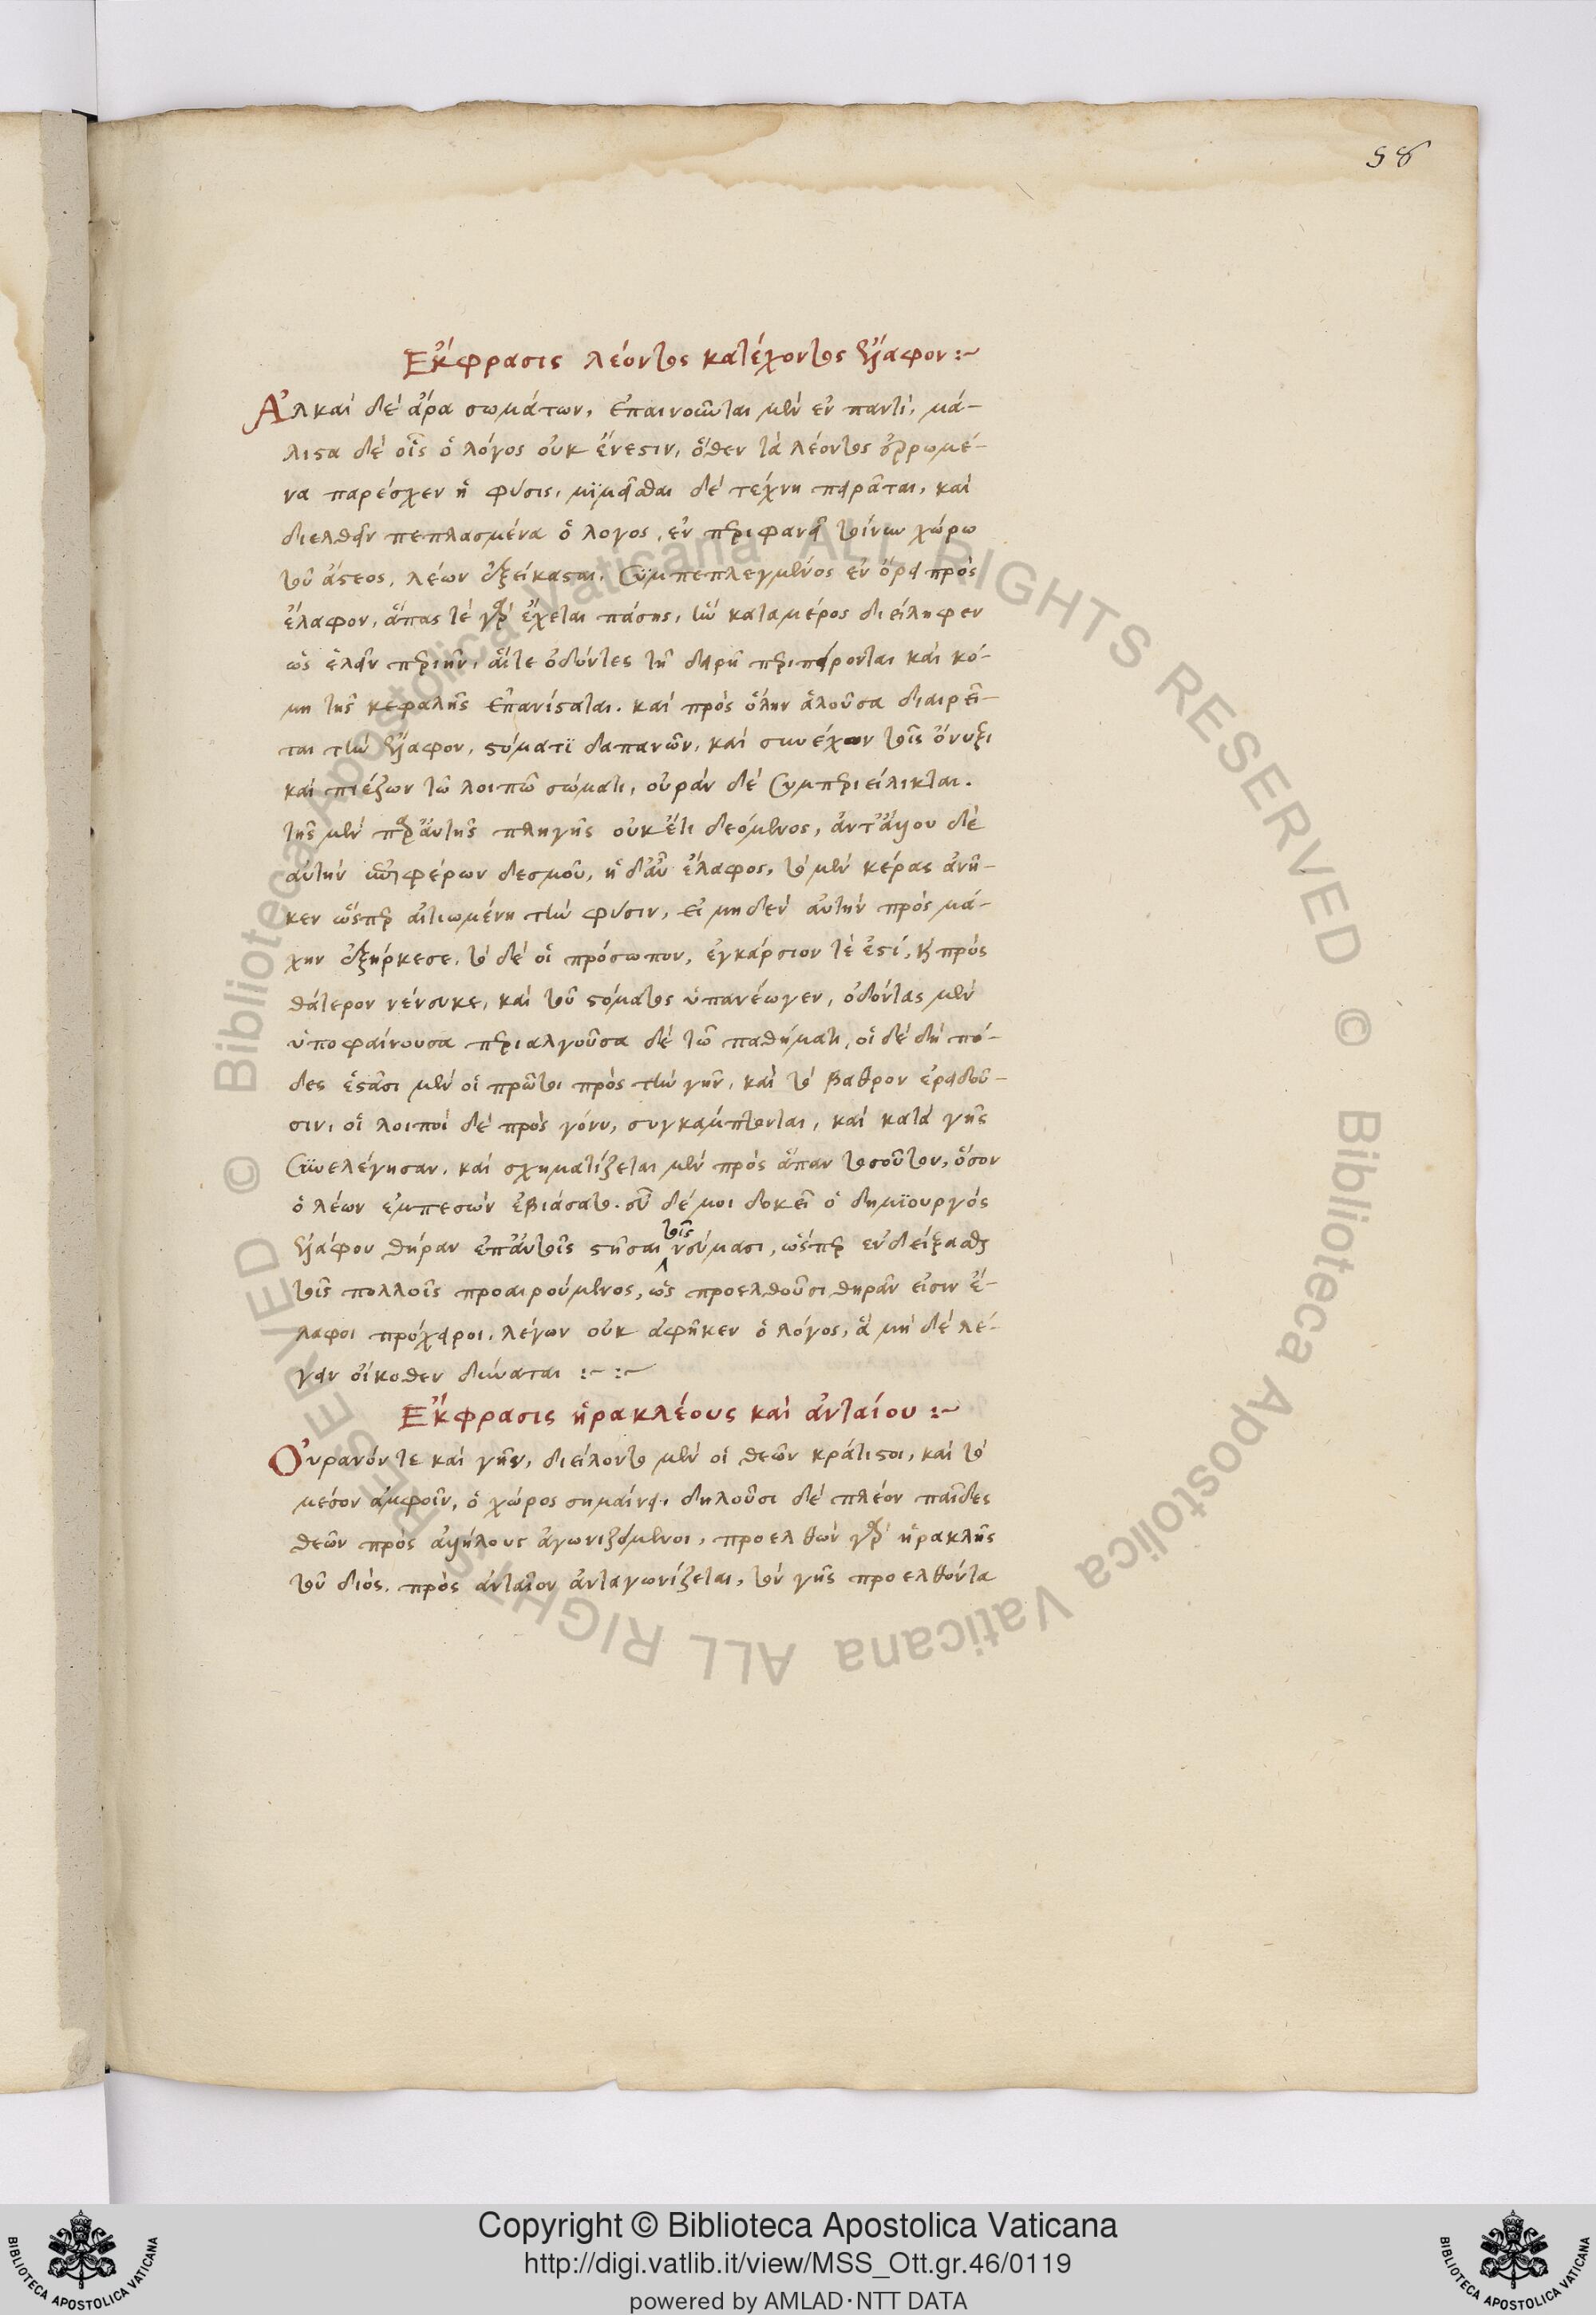 58
Ἔκφρασις λέοντος κατέχοντος ἔλαφον :~
Ἀλκαὶ δὲ ἄρα σωμάτων, ἐπαινοῦνται μὲν ἐν παντὶ, μά-
λιστα δὲ οἷς ὁ λόγος οὐκ ἔνεστιν, ὅθεν τὰ λέοντος ἐρρωμέ-
να παρέσχεν ἡ φύσις, μϊμεῖσθαι δὲ τέχνη πειρᾶται, καὶ
διελθεῖν πεπλασμένα ὁ λογος, ἐν περιφανεῖ τοίνυν χώρω
τοῦ ἄστεος, λέων ἐξείκασται, συμπεπλεγμένος ἐν ὄρει πρὸς
ἔλαφον, ἅπας τὲ γὰρ ἔχεται πάσης, καταμέρος διείληφεν
ὡς ἑλεῖν περιῆν, αἵτε ὀδόντες τῆ δειρῆ περιπείρονται καὶ κό-
μη τῆς κεφαλῆς ἐπανίσταται. καὶ πρὸς ὅλην ἁλοῦσα διαιρεῖ-
ται τὴν ἔλαφον, στόματϊ δαπανῶν, καὶ συνέχων τοῖς ὄνυξι
καὶ πιέζων τῶ λοιπῶ σώματι, οὐρὰν δὲ συμπεριείλικται.
τῆς μὲν παρ' αὐτῆς πληγῆς οὐκέτι δεόμενος, ἀντ' ἄλλου δὲ
αὐτὴν περιφέρων δεσμοῦ, ἡ δ' αὖ ἔλαφος, τὸ μὲν κέρας ἀνῆ-
κεν ὥσπερ αἰτιωμένη τὴν φύσιν, εἰ μηδὲν αὐτὴν πρὸς μά-
χην ἐξήρκεσε, τὸ δὲ οἱ πρόσωπον, ἐγκάρσιον τὲ ἐστὶ, καὶ πρὸς
θάτερον νένευκε, καὶ τοῦ στόματος ὑπανέωγεν, ὀδόντας μὲν
ὑποφαίνουσα περιαλγοῦσα δὲ τῶ παθήματι, οἱ δὲ δὴ πό-
δες ἑστᾶσι μὲν οἱ πρῶτοι πρὸς τὴν γῆν, καὶ τὸ βαθρον ἐρείδου-
σιν, οἱ λοιποὶ δὲ πρὸς γόνυ, συγκάμπτονται, καὶ κατὰ γῆς
συνελέγησαν, καὶ σχηματίζεται μὲν πρὸς ἅπαν τοσοῦτον, ὅσον
ὁ λέων ἐμπεσὼν ἐβιάσατο. οὗ δέ μοι δοκεῖ ὁ δημϊουργὸς
ἐλάφου θήραν ἐπ' αὐτοῖς στῆσαι τοῖς νοήμασι, ὥσπερ ἐνδείξασθαι
τοῖς πολλοῖς προαιρούμενος, ὡς προελθοῦσι θηρᾶν εἰσιν ἔ-
λαφοι πρόχειροι, λέγων οὐκ ἀφῆκεν ὁ λόγος, ἃ μὴ δὲ λέ-
γειν οἴκοθεν δύναται :~ :~
Ἔκφρασις ἡρακλέους καὶ ἀνταίου :~
Οὐρανόν τε καὶ γῆν, διείλοντο μὲν οἱ θεῶν κράτιστοι, καὶ τὸ
μέσον ἀμφοῖν, ὁ χώρος σημαίνει, δηλοῦσι δὲ πλέον παῖδες
θεῶν πρὸς ἀλλήλους ἀγωνιζόμενοι, προελθὼν γὰρ ἡρακλῆς
τοῦ διός, πρὸς ἀνταῖον ἀνταγωνίζεται, τὸν γῆς προελθόντα
© Biblioteca Apostolica Vaticana ALL RIGHTS RESERVED © Biblioteca Apostolica Vaticana ALL RIGHTS RESERVED
Copyright © Biblioteca Apostolica Vaticana
http://digi.vatlib.it/view/MSS_Ott.gr.46/0119
powered by AMLAD·NTT DATA
BIBLIOTECA APOSTOLICA VATICANA
BIBLIOTECA APOSTOLICA VATICANA